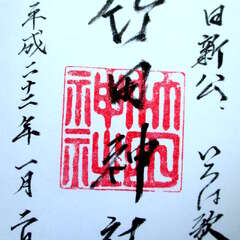 日新公 いろは歌
竹田神社
竹田神社
平成二十二年一月二